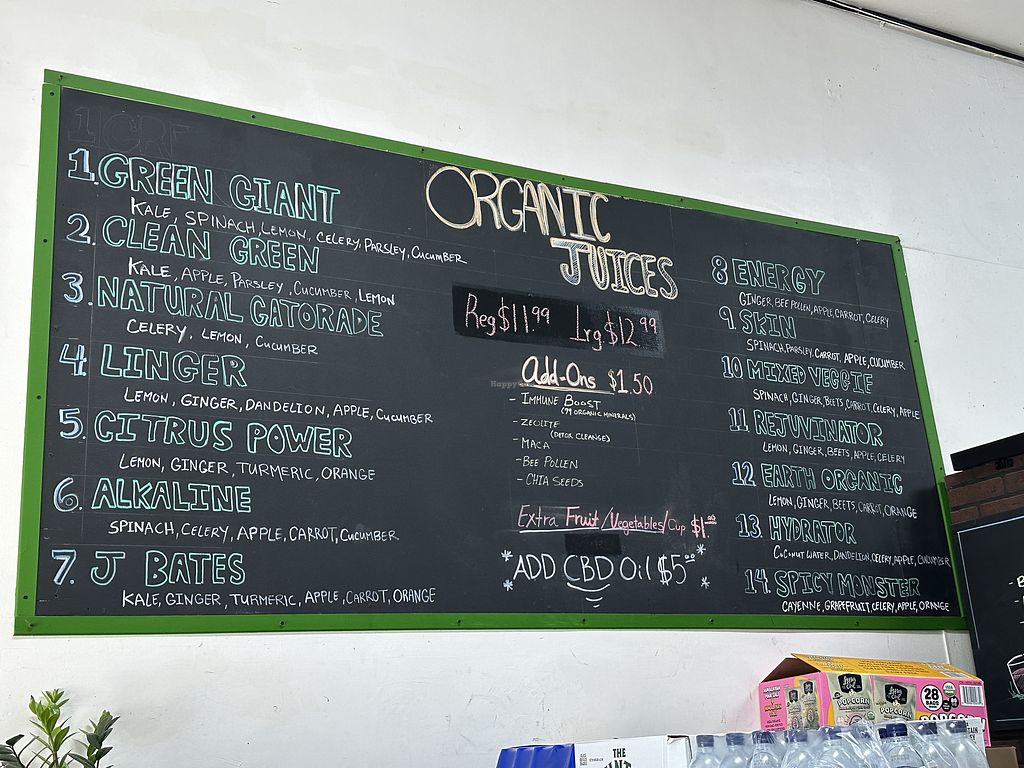 1. GREEN GIANT
KALE, SPINACH, LEMON, CELERY, PARSLEY, CUCUMBER
2. CLEAN GREEN
KALE, APPLE, PARSLEY, CUCUMBER, LEMON
3. NATURAL GATORADE
CELERY, LEMON, CUCUMBER
4. LINGER
LEMON, GINGER, DANDELION, APPLE, CUCUMBER
5. CITRUS POWER
LEMON, GINGER, TURMERIC, ORANGE
6. ALKALINE
SPINACH, CELERY, APPLE, CARROT, CUCUMBER
7. J BATES
KALE, GINGER, TURMERIC, APPLE, CARROT, ORANGE
ORGANIC
JUICES
Reg $11.99 Lrg $12.99
Add-Ons $1.50
- IMMUNE BOOST
(99 ORGANIC MINERALS)
- ZEOLITE
(DETOX CLEANSE)
- MACA
- BEE POLLEN
- CHIA SEEDS
Extra Fruit/Vegetables/Cup $1.00
*ADD CBD Oil $5.00*
8 ENERGY
GINGER, BEE POLLEN, APPLE, CARROT, CELERY
9. SKIN
SPINACH, PARSLEY, CARROT, APPLE, CUCUMBER
10 MIXED VEGGIE
SPINACH, GINGER, BEETS, CARROT, CELERY, APPLE
11 REJUVINATOR
LEMON, GINGER, BEETS, APPLE, CELERY
12 EARTH ORGANIC
LEMON, GINGER, BEETS, CARROT, ORANGE
13. HYDRATOR
COCONUT WATER, DANDELION, CELERY, APPLE, CUCUMBER
14. SPICY MONSTER
CAYENNE, GRAPEFRUIT, CELERY, APPLE, ORANGE
POPCORN
28
BAGS
THE